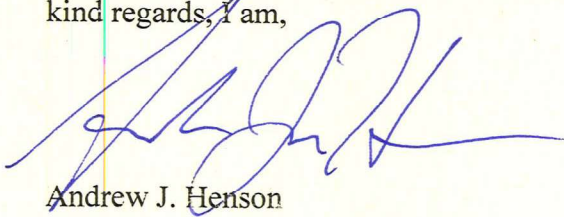 kind regards, I am,
Andrew J. Henson